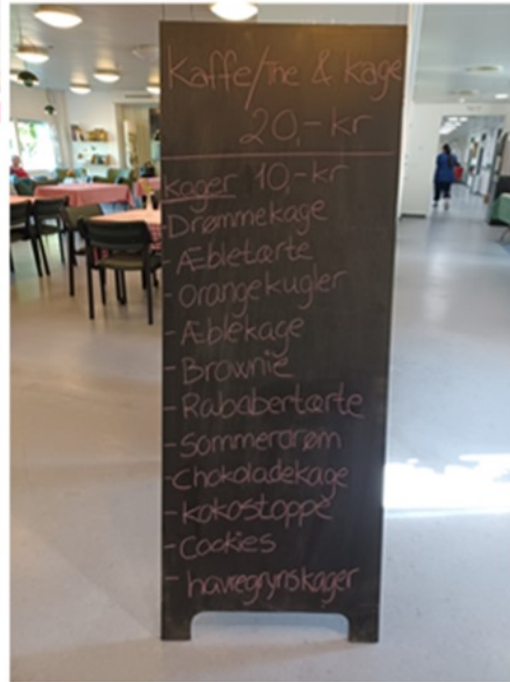 Kaffe/The & kage
20,- kr
Kager 10,- kr
Drømmekage
- Æbletærte
- Orangekugler
- Æblekage
- Brownie
- Rababertærte
- Sommerdrøm
- Chokoladekage
- Kokostoppe
- Cookies
- havregrynskager